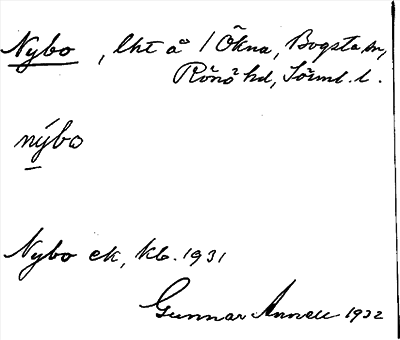 Nybo, lht å / Ökna, Bogsta sn,
Rönö hd, Sörml. l.
nýbo
Nybo ek, kb. 1931
Gunnar Annell 1932